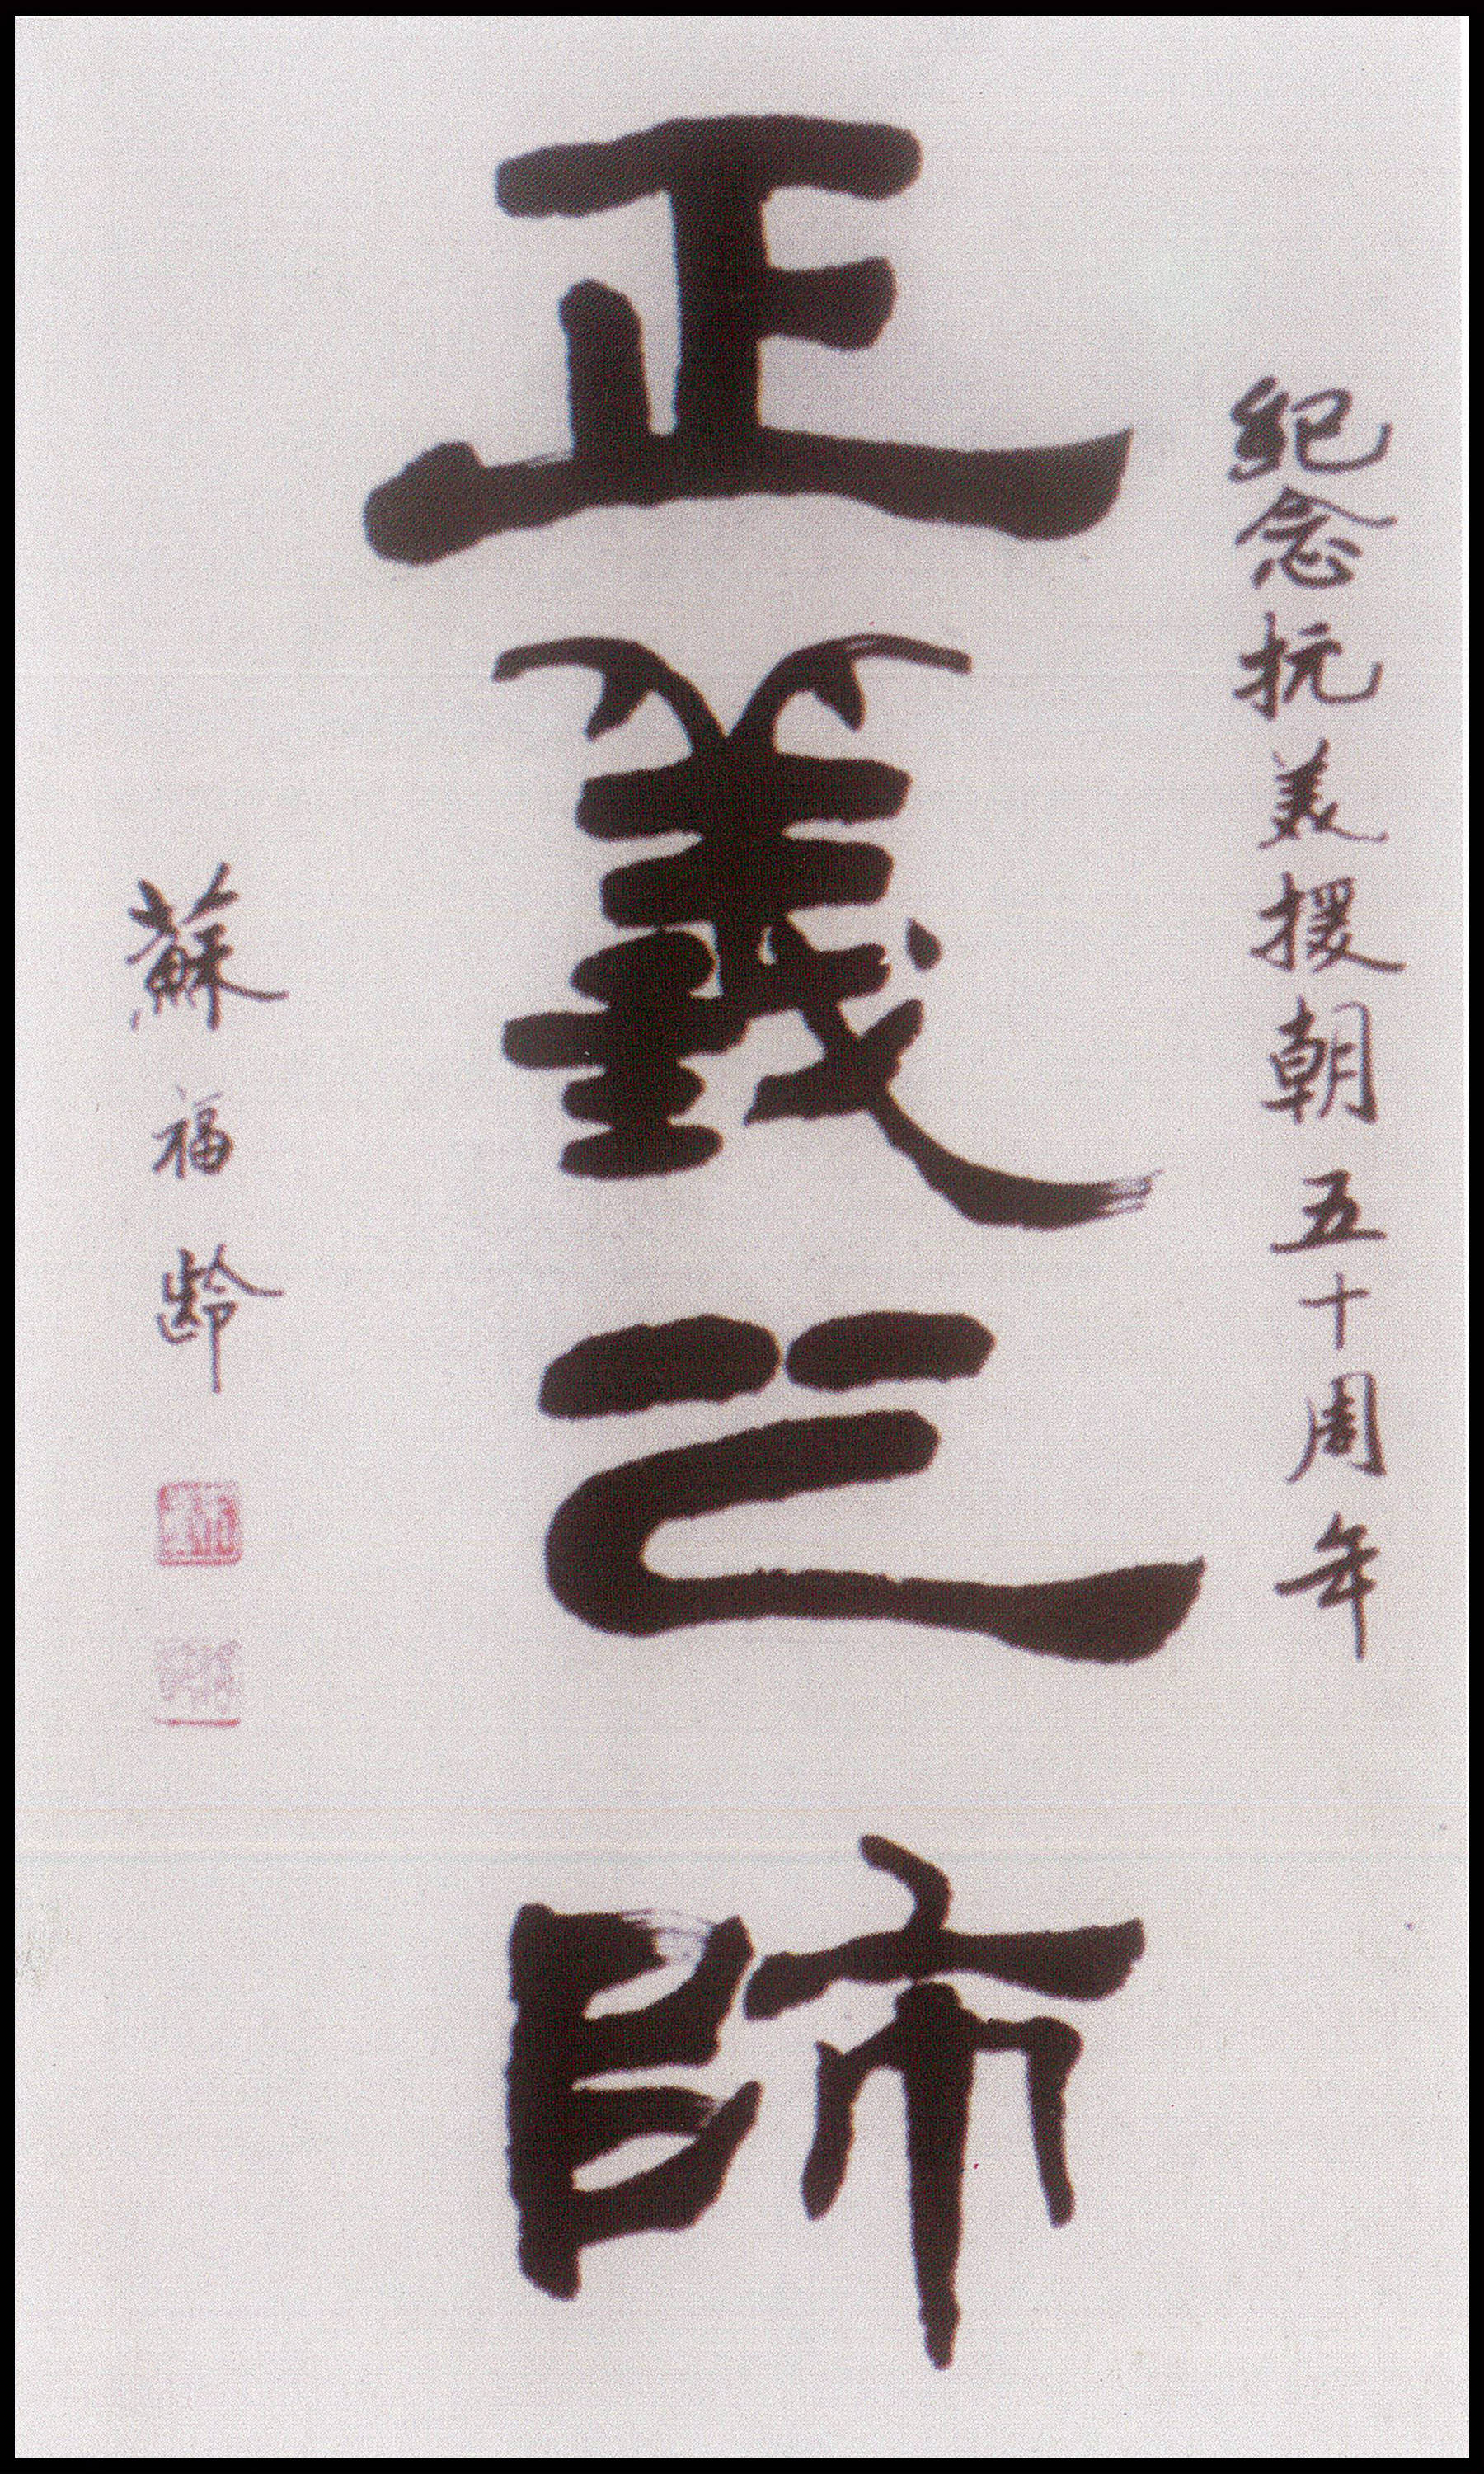 紀念抗美援朝五十周年
正義之師
蘇福龄